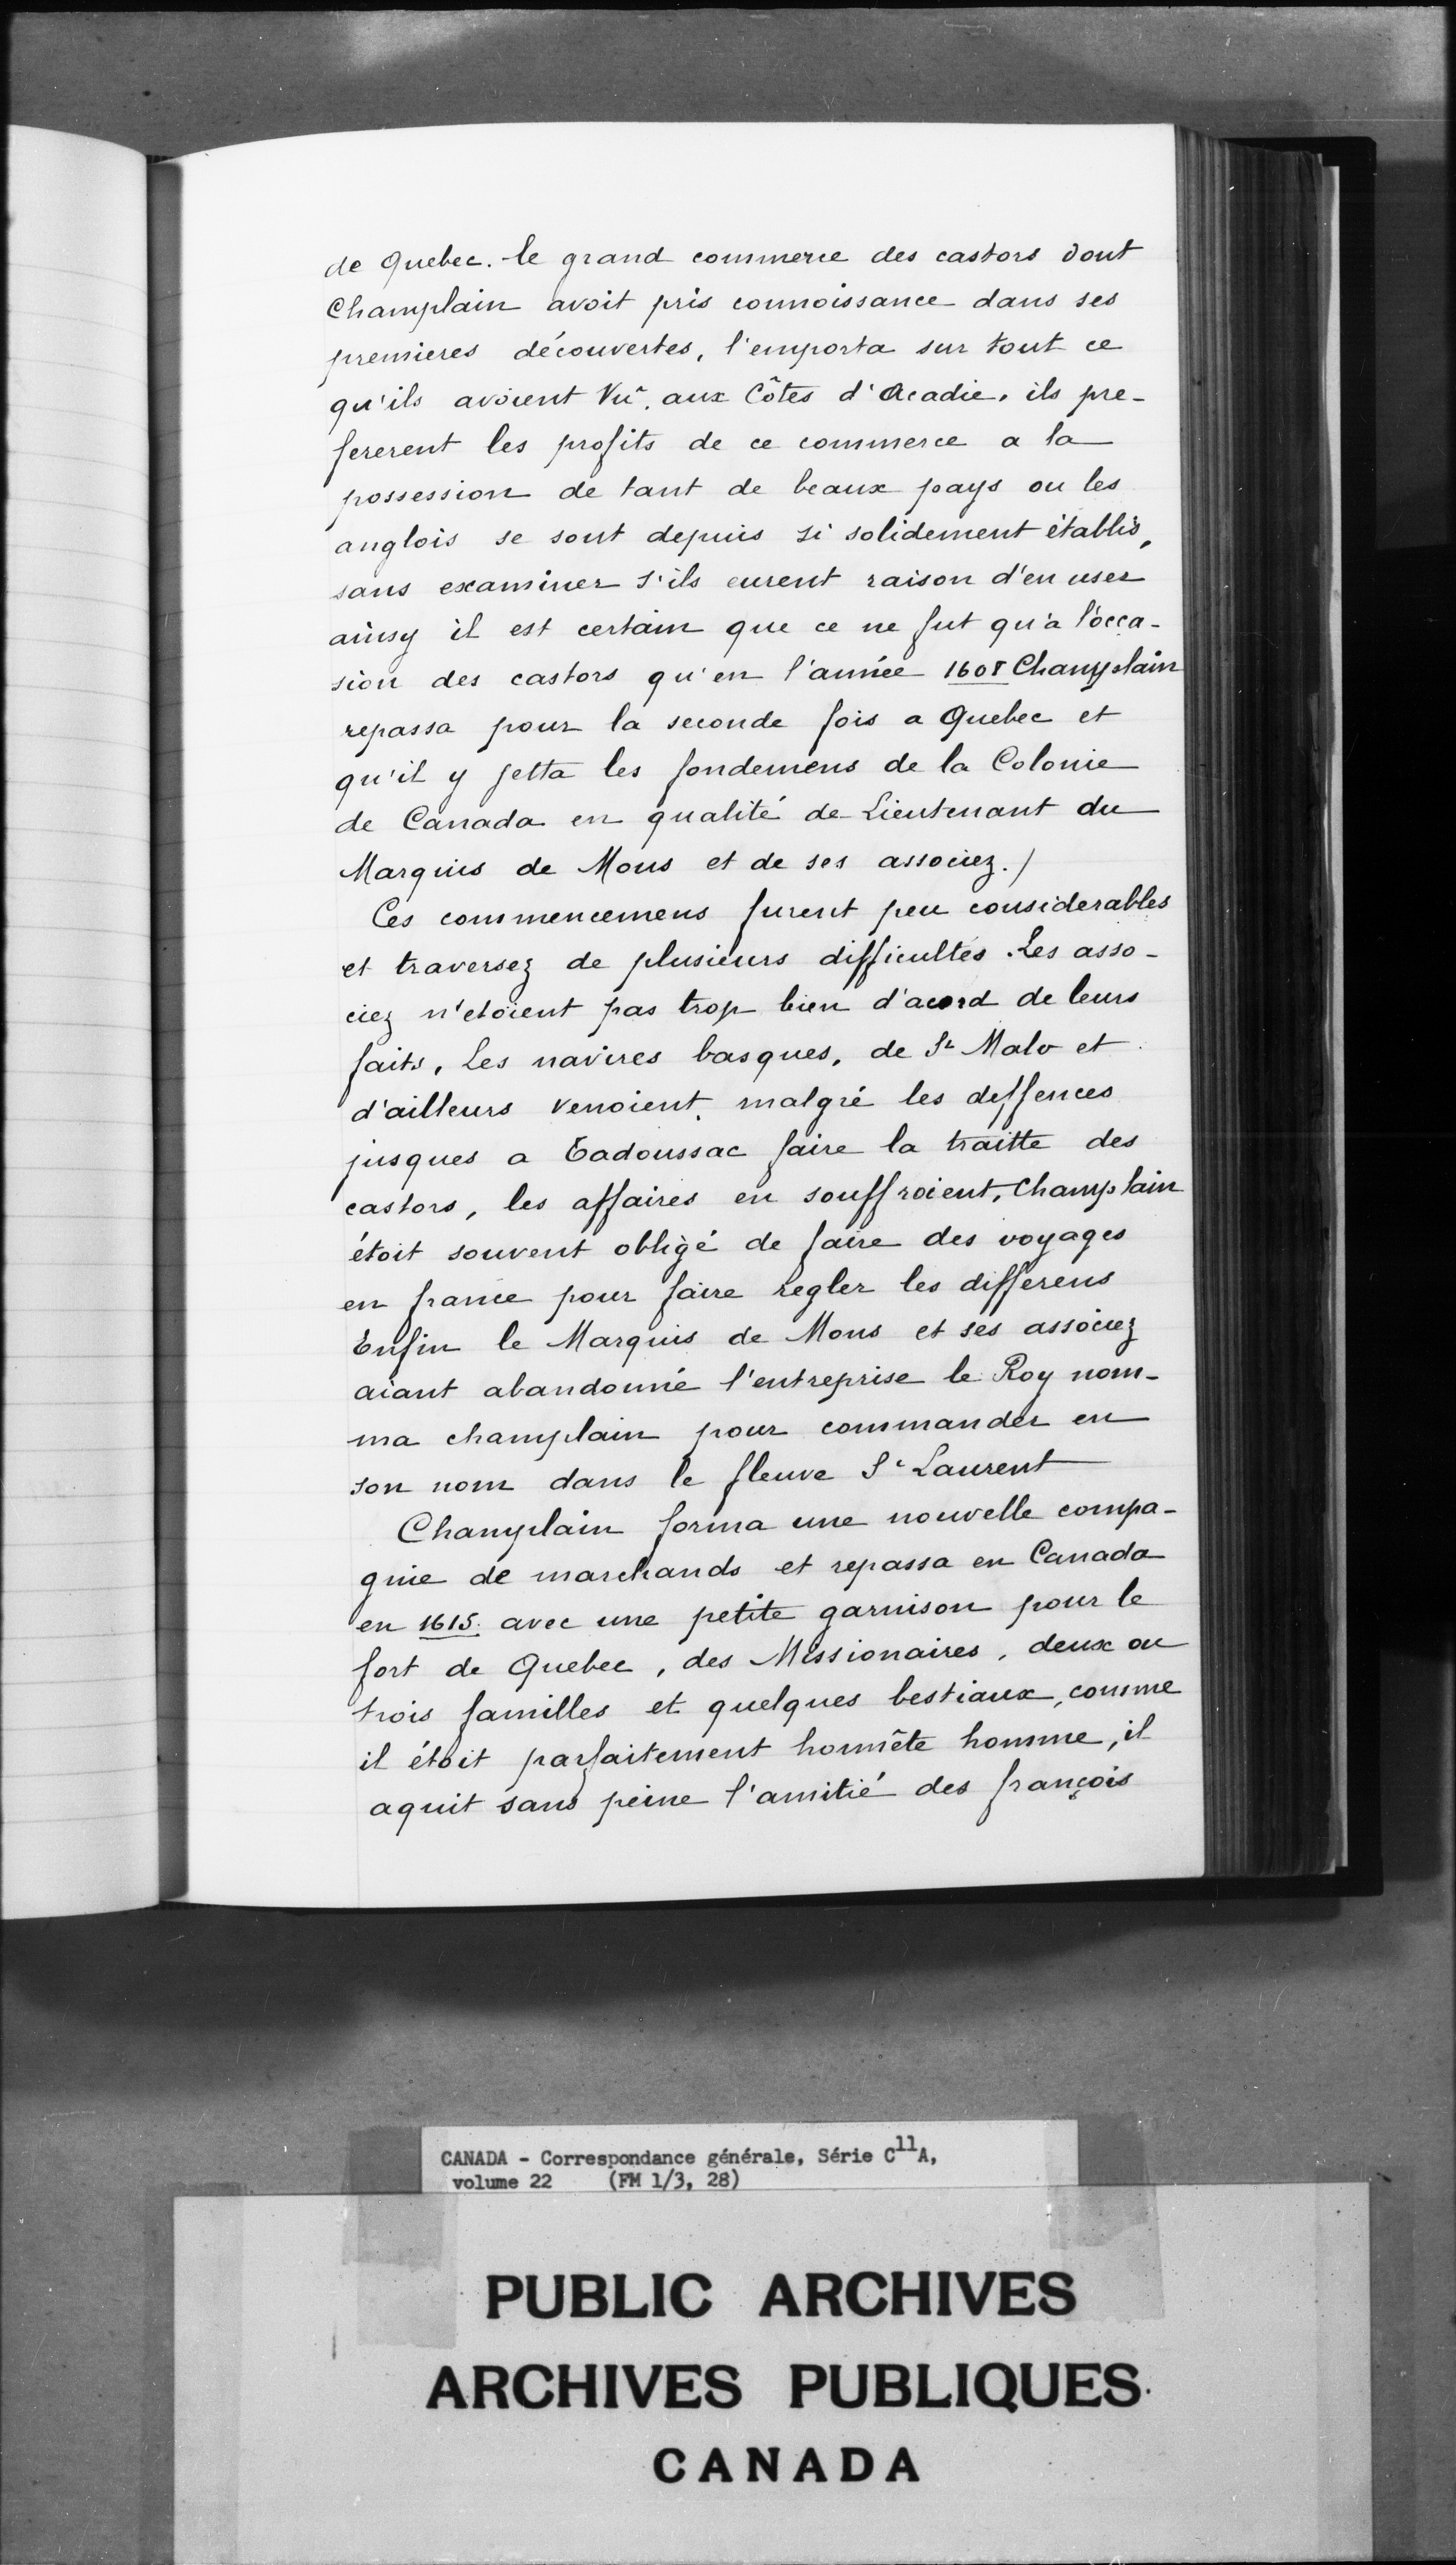 de Quebec. le grand commerce des castors dont
Champlain avoit pris connoissance dans ses
premieres découvertes, l'emporta sur tout ce
qu'ils avoient Vû. aux Côtes d'Acadie. ils pre-
fererent les profits de ce commerce a la
possession de tant de beaux pays ou les
anglois se sont depuis si solidement établis,
sans examiner s'ils eurent raison d'en user
ainsy il est certain que ce ne fut qu'a l'occa-
sion des castors qu'en l'année 1608 Champlain
repassa pour la seconde fois a Quebec et
qu'il y jetta les fondemens de la Colonie
de Canada en qualité de Lieutenant du
Marquis de Mons et de ses associez./
Ces commencemens furent peu considerables
et traversez de plusieurs difficultés. Les asso-
ciez n'etoient pas trop bien d'acord de leurs
faits. Les navires basques, de St Malo et
d'ailleurs venoient malgré les deffences
jusques a Tadoussac faire la traitte des
castors, les affaires en souffroient. Champlain
étoit souvent obligé de faire des voyages
en france pour faire regler les differens
Enfin le Marquis de Mons et ses associez
aiant abandonné l'entreprise le Roy nom-
ma champlain pour commander en
son nom dans le fleuve St Laurent
Champlain forma une nouvelle compa-
gnie de marchands et repassa en Canada
en 1615. avec une petite garnison pour le
fort de Quebec, des Missionaires, deux ou
trois familles et quelques bestiaux, comme
il étoit parfaitement honnête homme, il
aquit sans peine l'amitié des françois
CANADA - Correspondance générale, Série C11A,
volume 22 (FM 1/3, 28)
PUBLIC ARCHIVES
ARCHIVES PUBLIQUES
CANADA